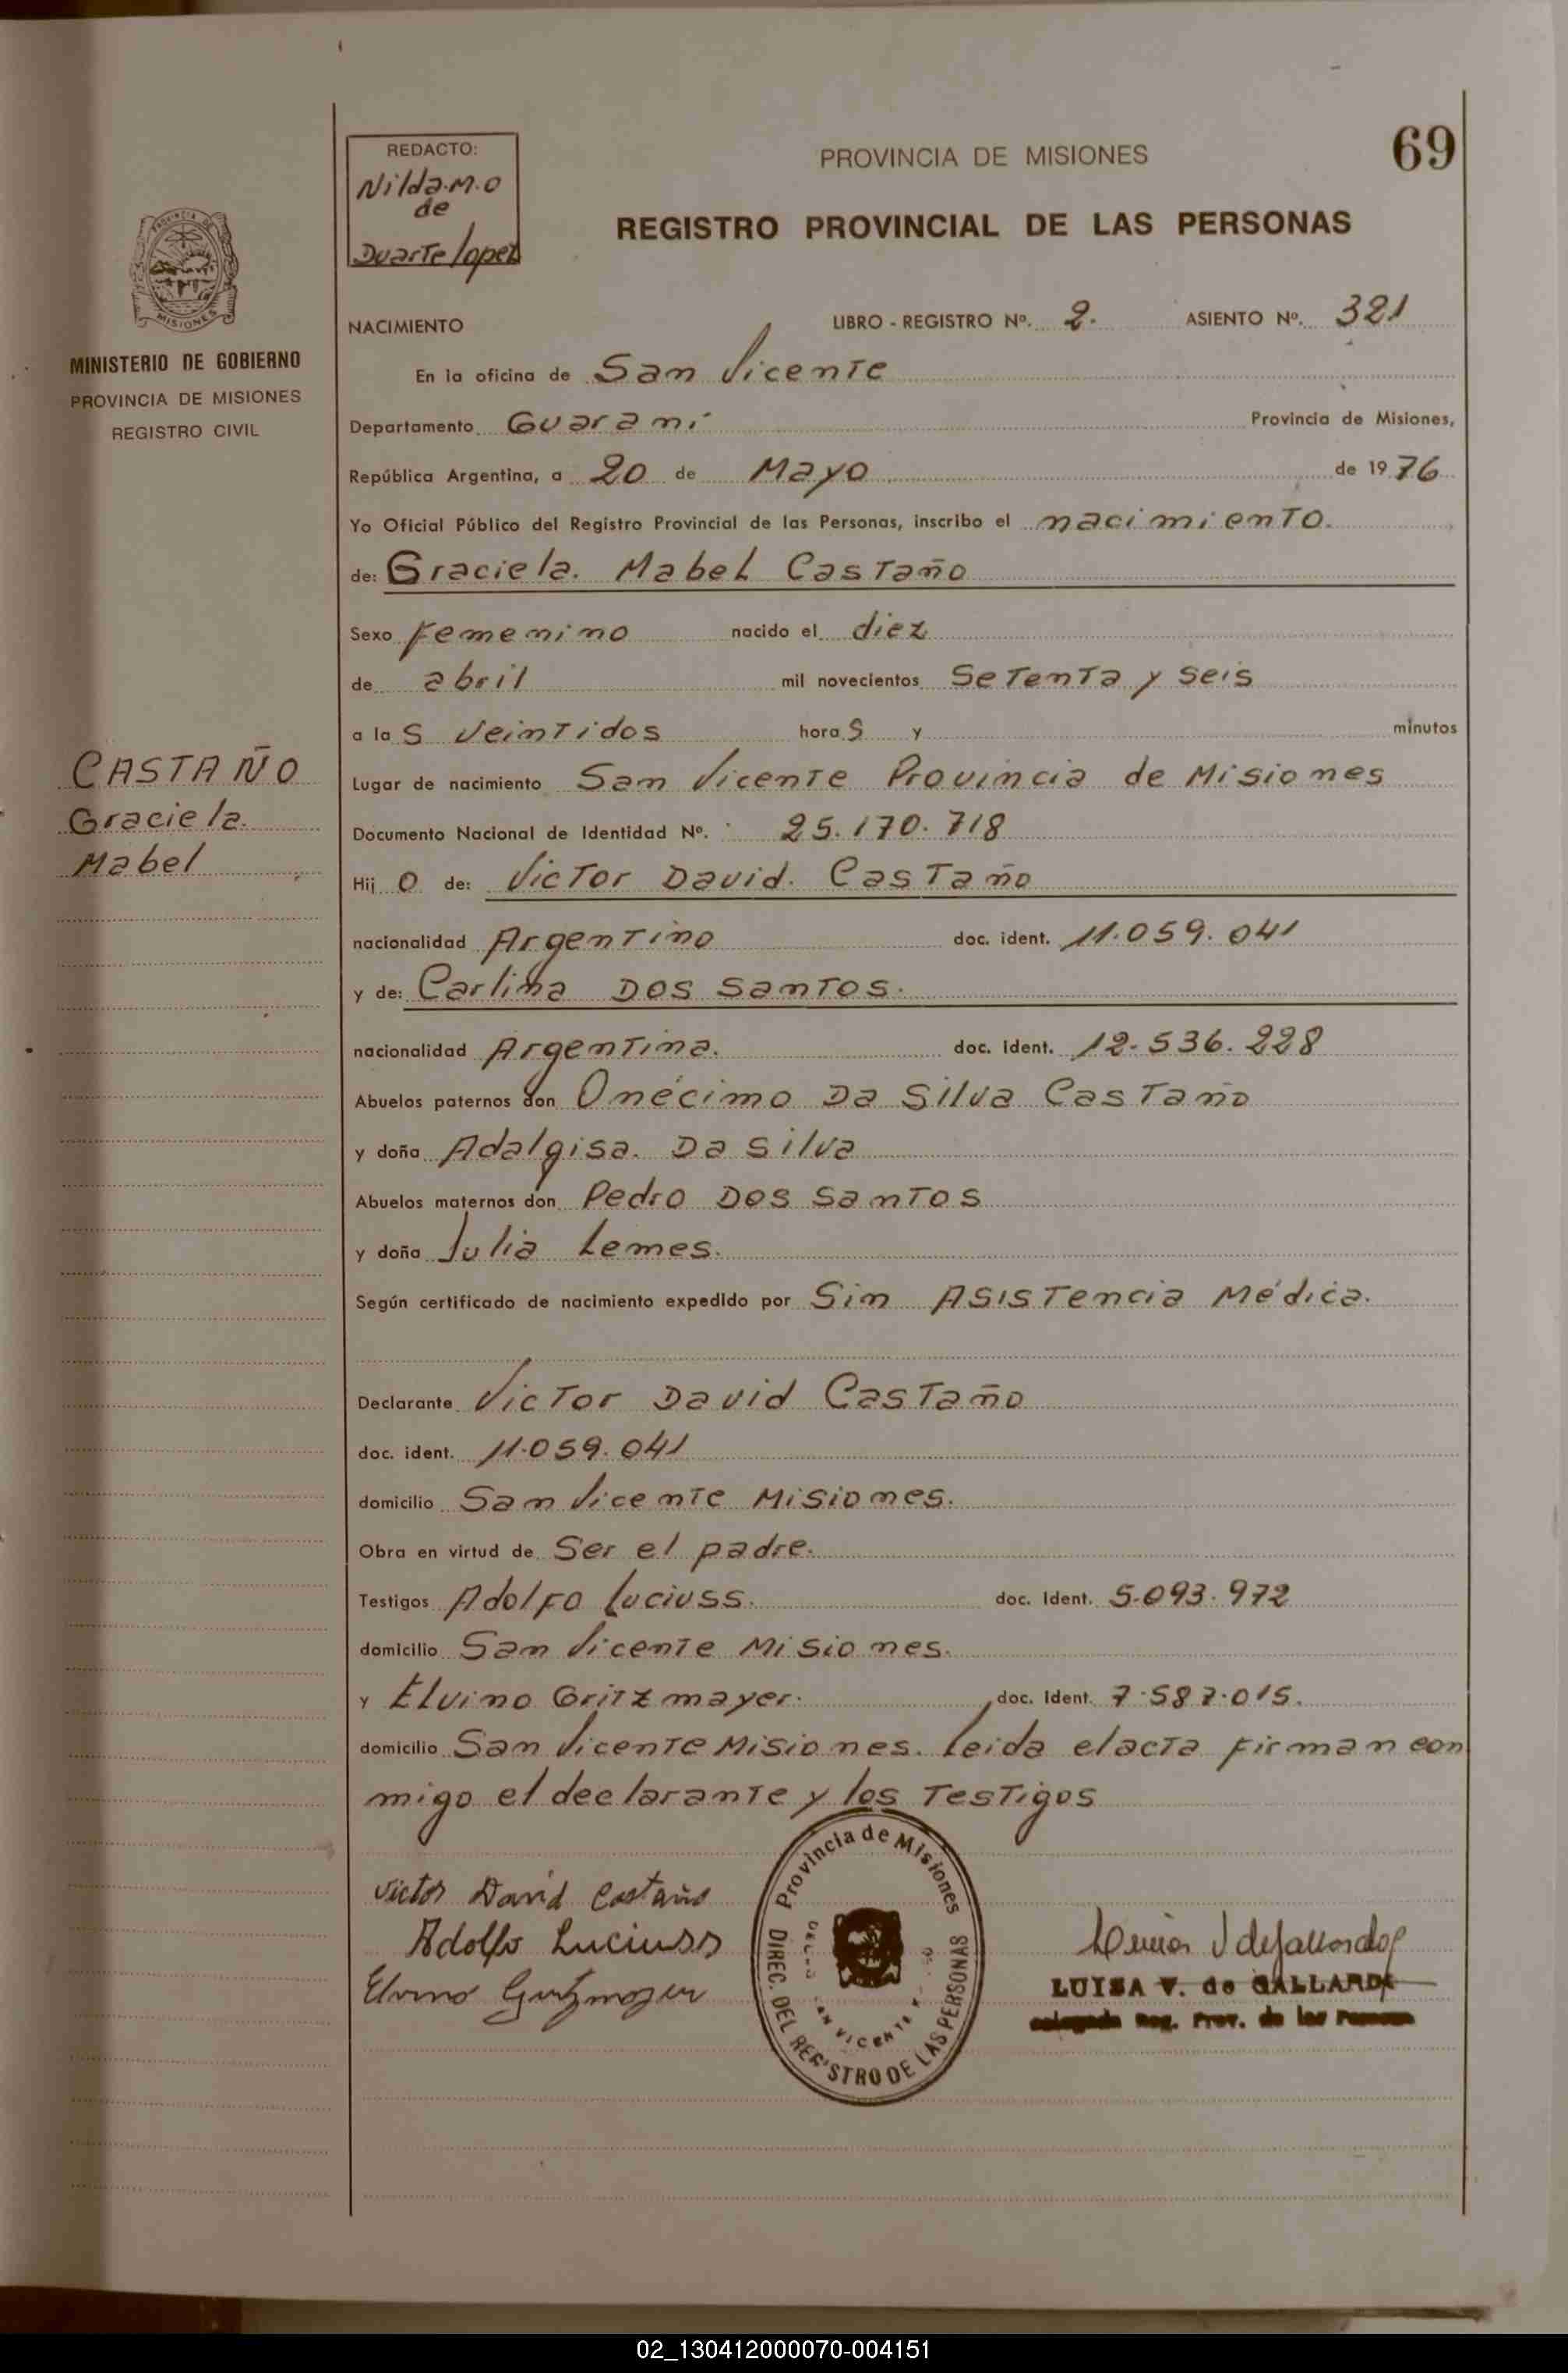 69
REDACTO:
Nilda.M.O
de
Duarte lopez
PROVINCIA DE MISIONES
REGISTRO PROVINCIAL DE LAS PERSONAS
PROVINCIA DE
MISIONES
MINISTERIO DE GOBIERNO
PROVINCIA DE MISIONES
REGISTRO CIVIL
CASTAÑO
Graciela.
Mabel
NACIMIENTO LIBRO - REGISTRO Nº. 2. ASIENTO Nº. 321
En la oficina de San Vicente
Departamento Guaraní Provincia de Misiones,
República Argentina, a 20 de Mayo de 1976
Yo Oficial Público del Registro Provincial de las Personas, inscribo el nacimiento.
de: Graciela. Mabel Castaño
Sexo femenino nacido el diez
de abril mil novecientos Setenta y Seis
a las veintidos horas y minutos
Lugar de nacimiento San Vicente Provincia de Misiones
Documento Nacional de Identidad Nº. 25.170.718
Hijo de: Victor David. Castaño
nacionalidad Argentino doc. ident. 11.059.041
y de: Carlina Dos Santos.
nacionalidad Argentina. doc. ident. 12.536.228
Abuelos paternos don Onécimo Da Silva Castaño
y doña Adalgisa. Da Silva
Abuelos maternos don Pedro Dos Santos
y doña Julia Lemes.
Según certificado de nacimiento expedido por Sin Asistencia Médica.
Declarante Victor David Castaño
doc. ident. 11.059.041
domicilio San Vicente Misiones.
Obra en virtud de Ser el padre.
Testigos Adolfo Luciuss. doc. Ident. 5.093.972
domicilio San Vicente Misiones.
y Elvino Gritzmayer. doc. Ident. 7.587.015.
domicilio San Vicente Misiones. Leida el acta firman con
migo el declarante y los Testigos
Victor David Castaño
Adolfo Luciuss
Provincia de Misiones
DIREC. DEL REGISTRO DE LAS PERSONAS
VICENTE
LUISA V. de GALLARDO
Delegada Reg. Prov. de las Personas
02_130412000070-004151